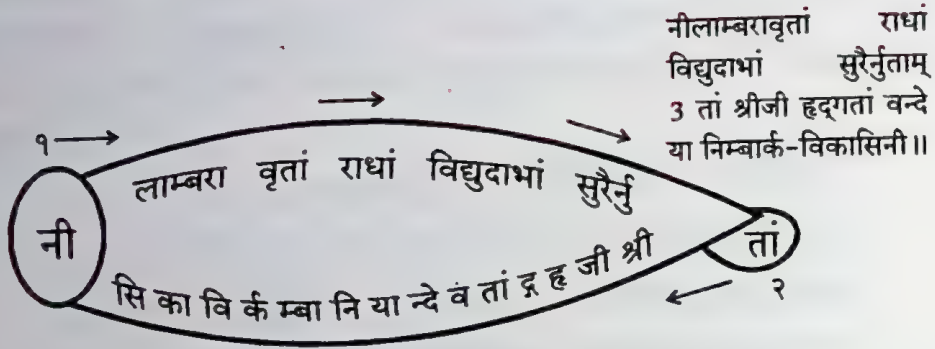 नीलाम्बरावृतां राधां
विद्युदाभां सुरैर्नुताम्
3 तां श्रीजी हृद्गतां वन्दे
या निम्बार्क-विकासिनी॥
१
लाम्बरा वृतां राधां विद्युदाभां सुरैर्नु
नी
तां
सि का वि र्क म्बा नि या न्दे वं तां द्ग हृ जी श्री
२